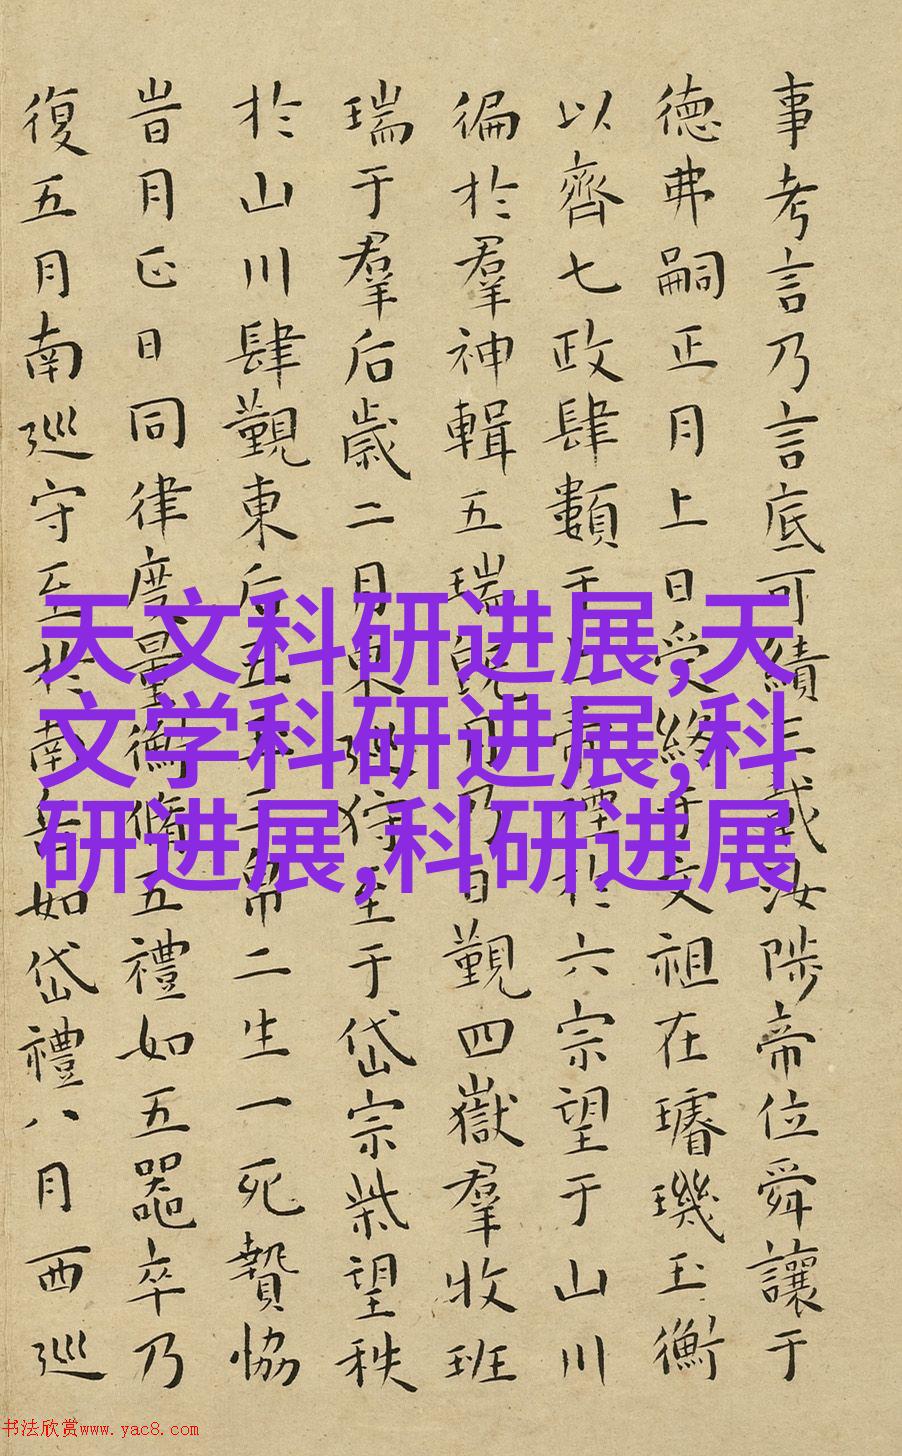 事考言乃言底可績三載汝陟帝位舜讓于
德弗嗣正月上日受終于文祖在璿璣玉衡
以齊七政肆類于上帝禋於六宗望于山川
徧於羣神輯五瑞既月乃日覲四嶽羣牧班
瑞于羣后歲二月東巡狩至于岱宗柴望秩
於山川肆覲東后五玉三帛二生一死贄協
旹月正日同律度量衡脩五禮如五器卒乃
復五月南巡守至於南岳如岱禮八月西巡
天文科研进展,天
文学科研进展,科
研进展,科研进展
书法欣赏www.yac8.com